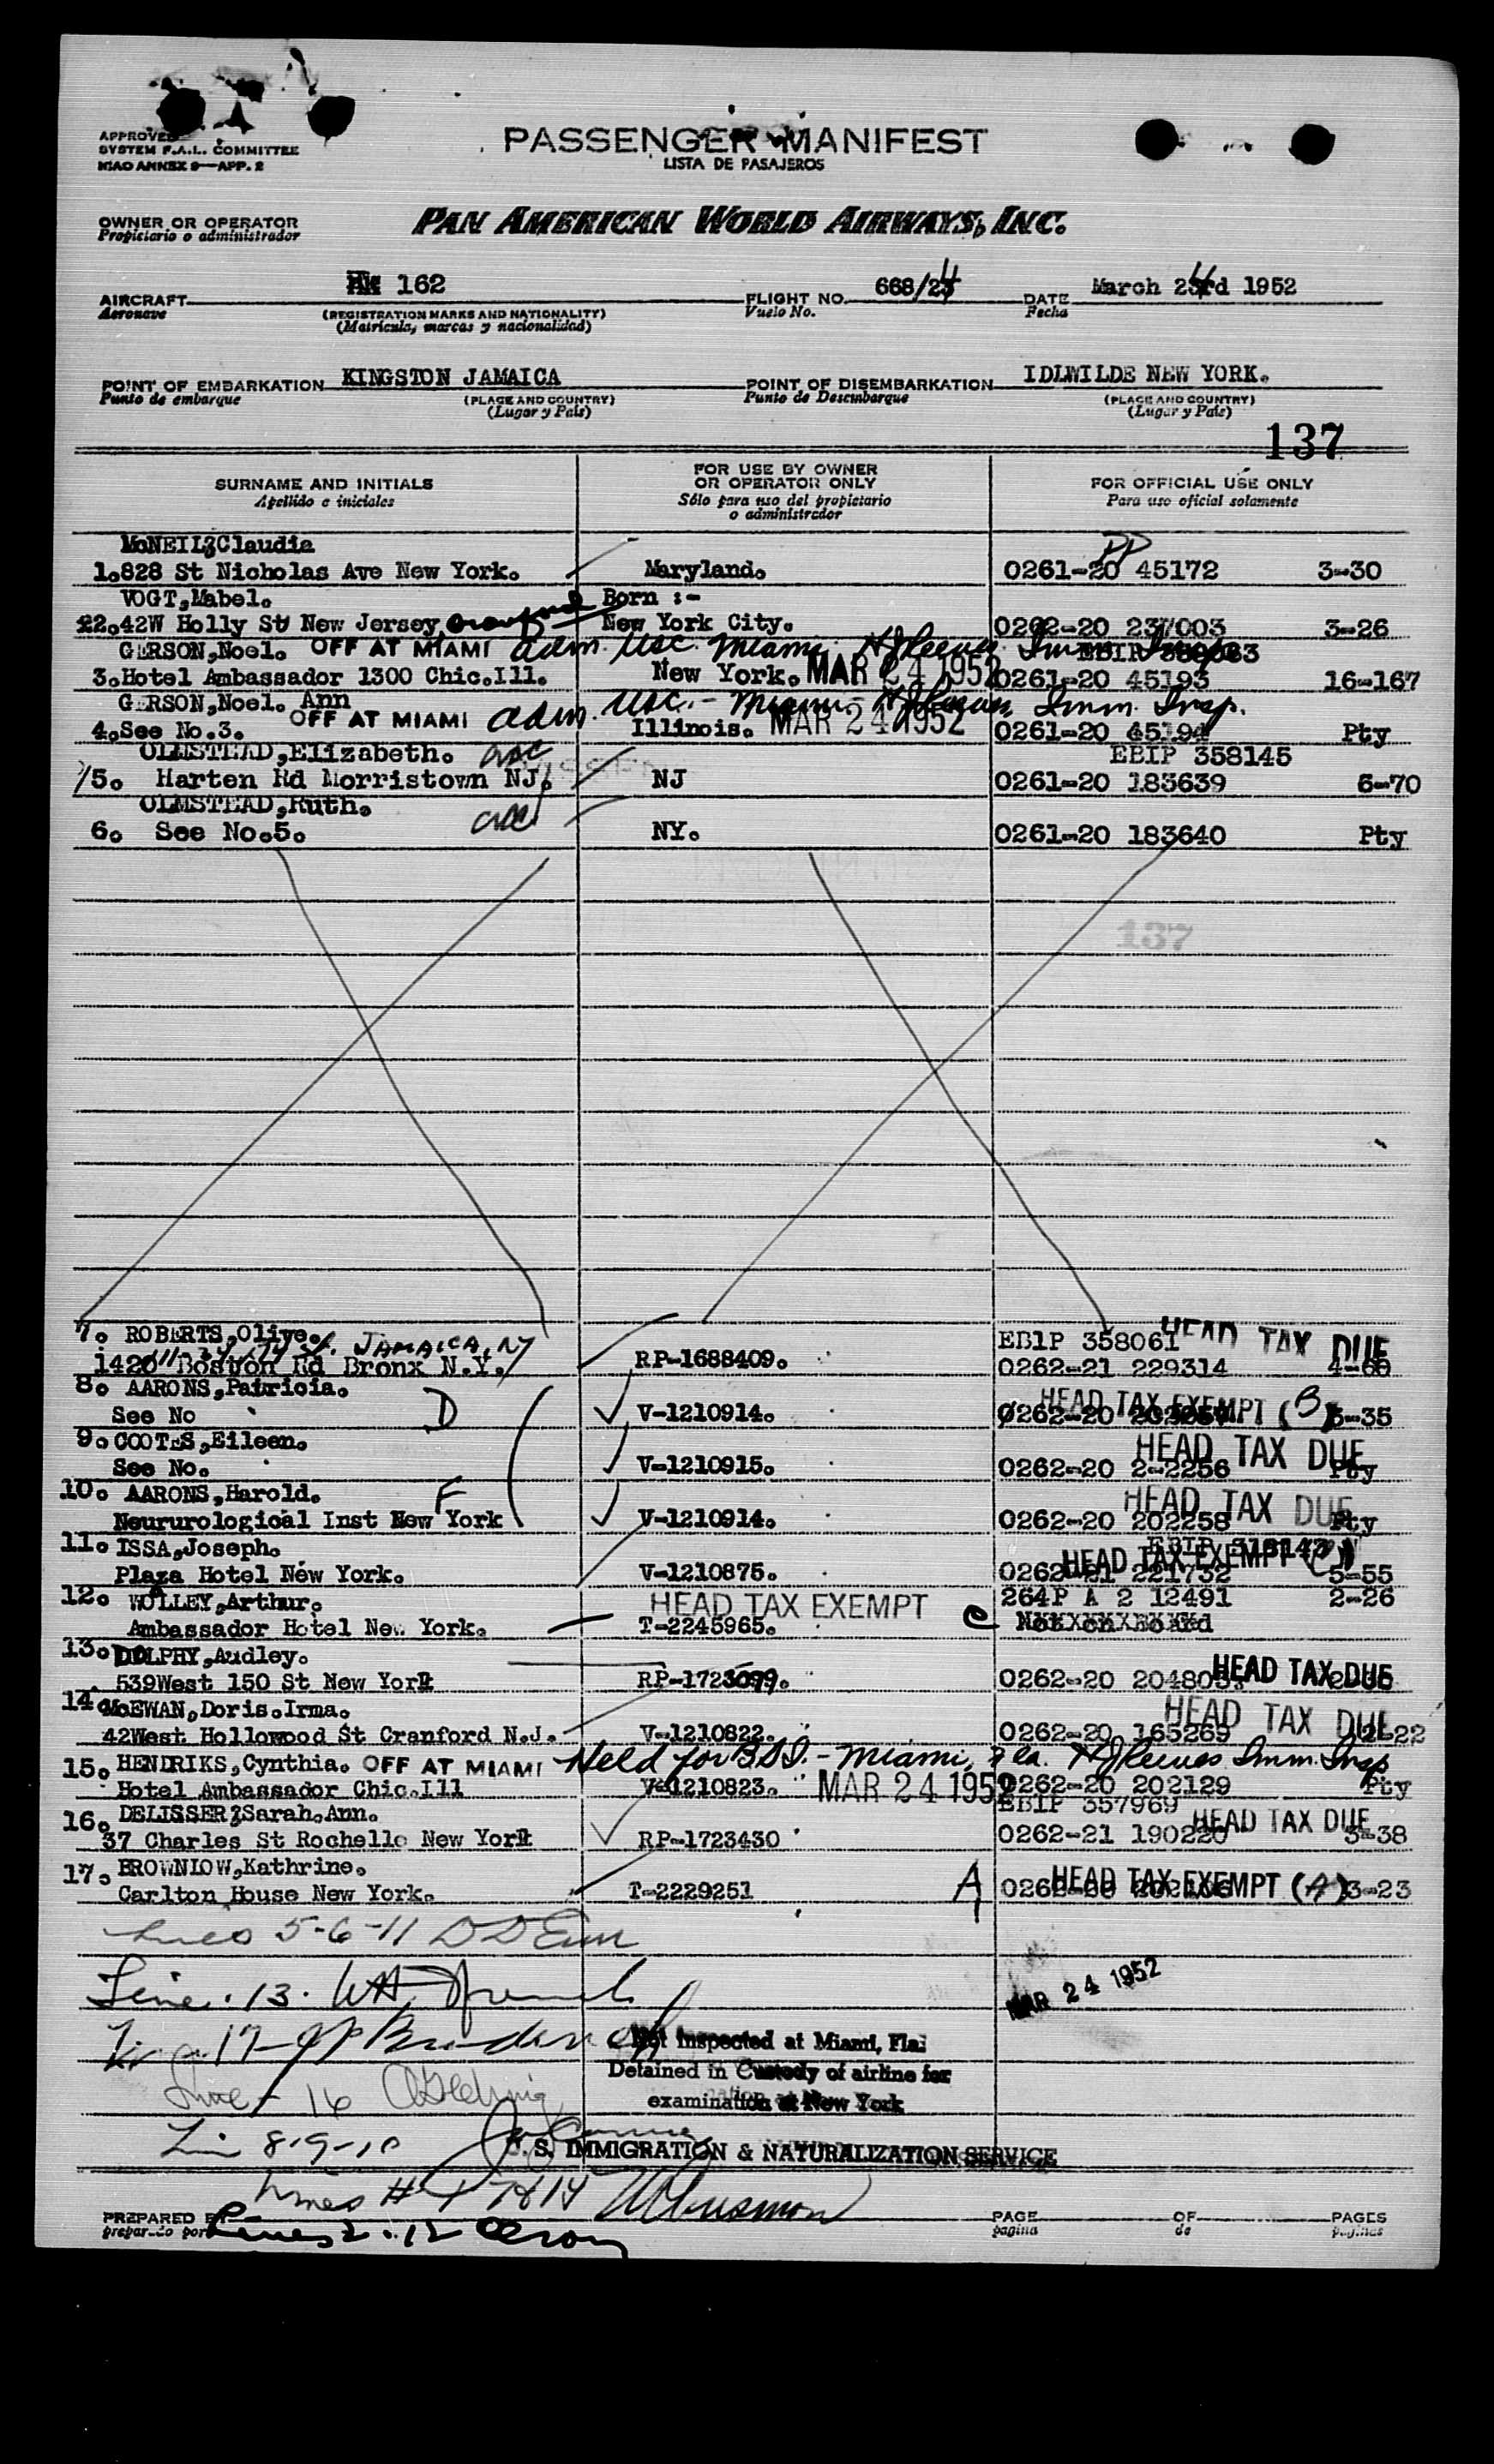 APPROVED
SYSTEM F.A.L. COMMITTEE
ICAO ANNEX 9—APP. 2
PASSENGER MANIFEST
LISTA DE PASAJEROS
OWNER OR OPERATOR
Propietario o administrador
PAN AMERICAN WORLD AIRWAYS, INC.
AIRCRAFT 162 FLIGHT NO. 668/24 DATE March 24rd 1952
Aeronave (REGISTRATION MARKS AND NATIONALITY) Vuelo No. Fecha
(Matricula, marcas y nacionalidad)
POINT OF EMBARKATION KINGSTON JAMAICA POINT OF DISEMBARKATION IDLWILDE NEW YORK.
Punto de embarque (PLACE AND COUNTRY) Punto de Desembarque (PLACE AND COUNTRY)
(Lugar y País) (Lugar y País)
137
SURNAME AND INITIALS FOR USE BY OWNER OR OPERATOR ONLY FOR OFFICIAL USE ONLY
Apellido e iniciales Sólo para uso del propietario o administrador Para uso oficial solamente
McNEIL,Claudia PP
1.828 St Nicholas Ave New York. Maryland. 0261-20 45172 3-30
VOGT,Mabel. Born :-
2.42W Holly St New Jersey New York City. 0262-20 237003 3-26
GERSON,Noel. OFF AT MIAMI adm. USC. Miami. HJReeves Imm. Insp.
3.Hotel Ambassador 1300 Chic.Ill. New York. MAR 24 1952 0261-20 45193 16-167
GERSON,Noel. Ann OFF AT MIAMI adm. USC.- Miami.- HJReeves Imm. Insp.
4.See No.3. Illinois. MAR 24 1952 0261-20 45194 Pty
OLMSTEAD,Elizabeth. usc EBIP 358145
5. Harten Rd Morristown NJ. NJ 0261-20 183639 6-70
OLMSTEAD,Ruth. usc
6. See No.5. NY. 0261-20 183640 Pty
137
7. ROBERTS,Olive. JAMAICA, NY EBIP 358061 HEAD TAX DUE
1420 Boston Rd Bronx N.Y. RP-1688409. 0262-21 229314 4-60
8. AARONS,Patricia. D HEAD TAX EXEMPT (B)
See No V-1210914. 0262-20 3-35
9. COOTES,Eileen. HEAD TAX DUE
See No. V-1210915. 0262-20 2-2256 Pty
10. AARONS,Harold. F HEAD TAX DUE
Neururological Inst New York V-1210914. 0262-20 202258 Pty
11. ISSA,Joseph. HEAD TAX EXEMPT
Plaza Hotel New York. V-1210875. 0262-21 221732 5-55
12. WOLLEY,Arthur. HEAD TAX EXEMPT C 264P A 2 12491 2-26
Ambassador Hotel New York. T-2245965. Not on Board
13. DOLPHY,Audley. HEAD TAX DUE
539West 150 St New York RP-1723099. 0262-20
14. McEWAN,Doris.Irma. HEAD TAX DUE
42West Hollowood St Cranford N.J. V-1210822. 0262-20 165269
15. HENDRIKS,Cynthia. OFF AT MIAMI Held for BSI.- Miami, HJReeves Imm. Insp
Hotel Ambassador Chic.Ill V-1210823. MAR 24 1952 0262-20 202129 Pty
16. DELISSER,Sarah.Ann. EBIP 357969 HEAD TAX DUE
37 Charles St Rochelle New York RP-1723430 0262-21 190220 3-38
17. BROWNLOW,Kathrine. A HEAD TAX EXEMPT (A)
Carlton House New York. T-2229251 3-23
Lines 5-6-11
Line 13.
MAR 24 1952
17-
Not Inspected at Miami, Fla.
Detained in Custody of airline for
examination at New York
Line - 16
8-9-10
U. S. IMMIGRATION & NATURALIZATION SERVICE
Lines # 1 7 & 14
PREPARED BY Lines 2.12 PAGE OF PAGES
preparado por pagina de paginas